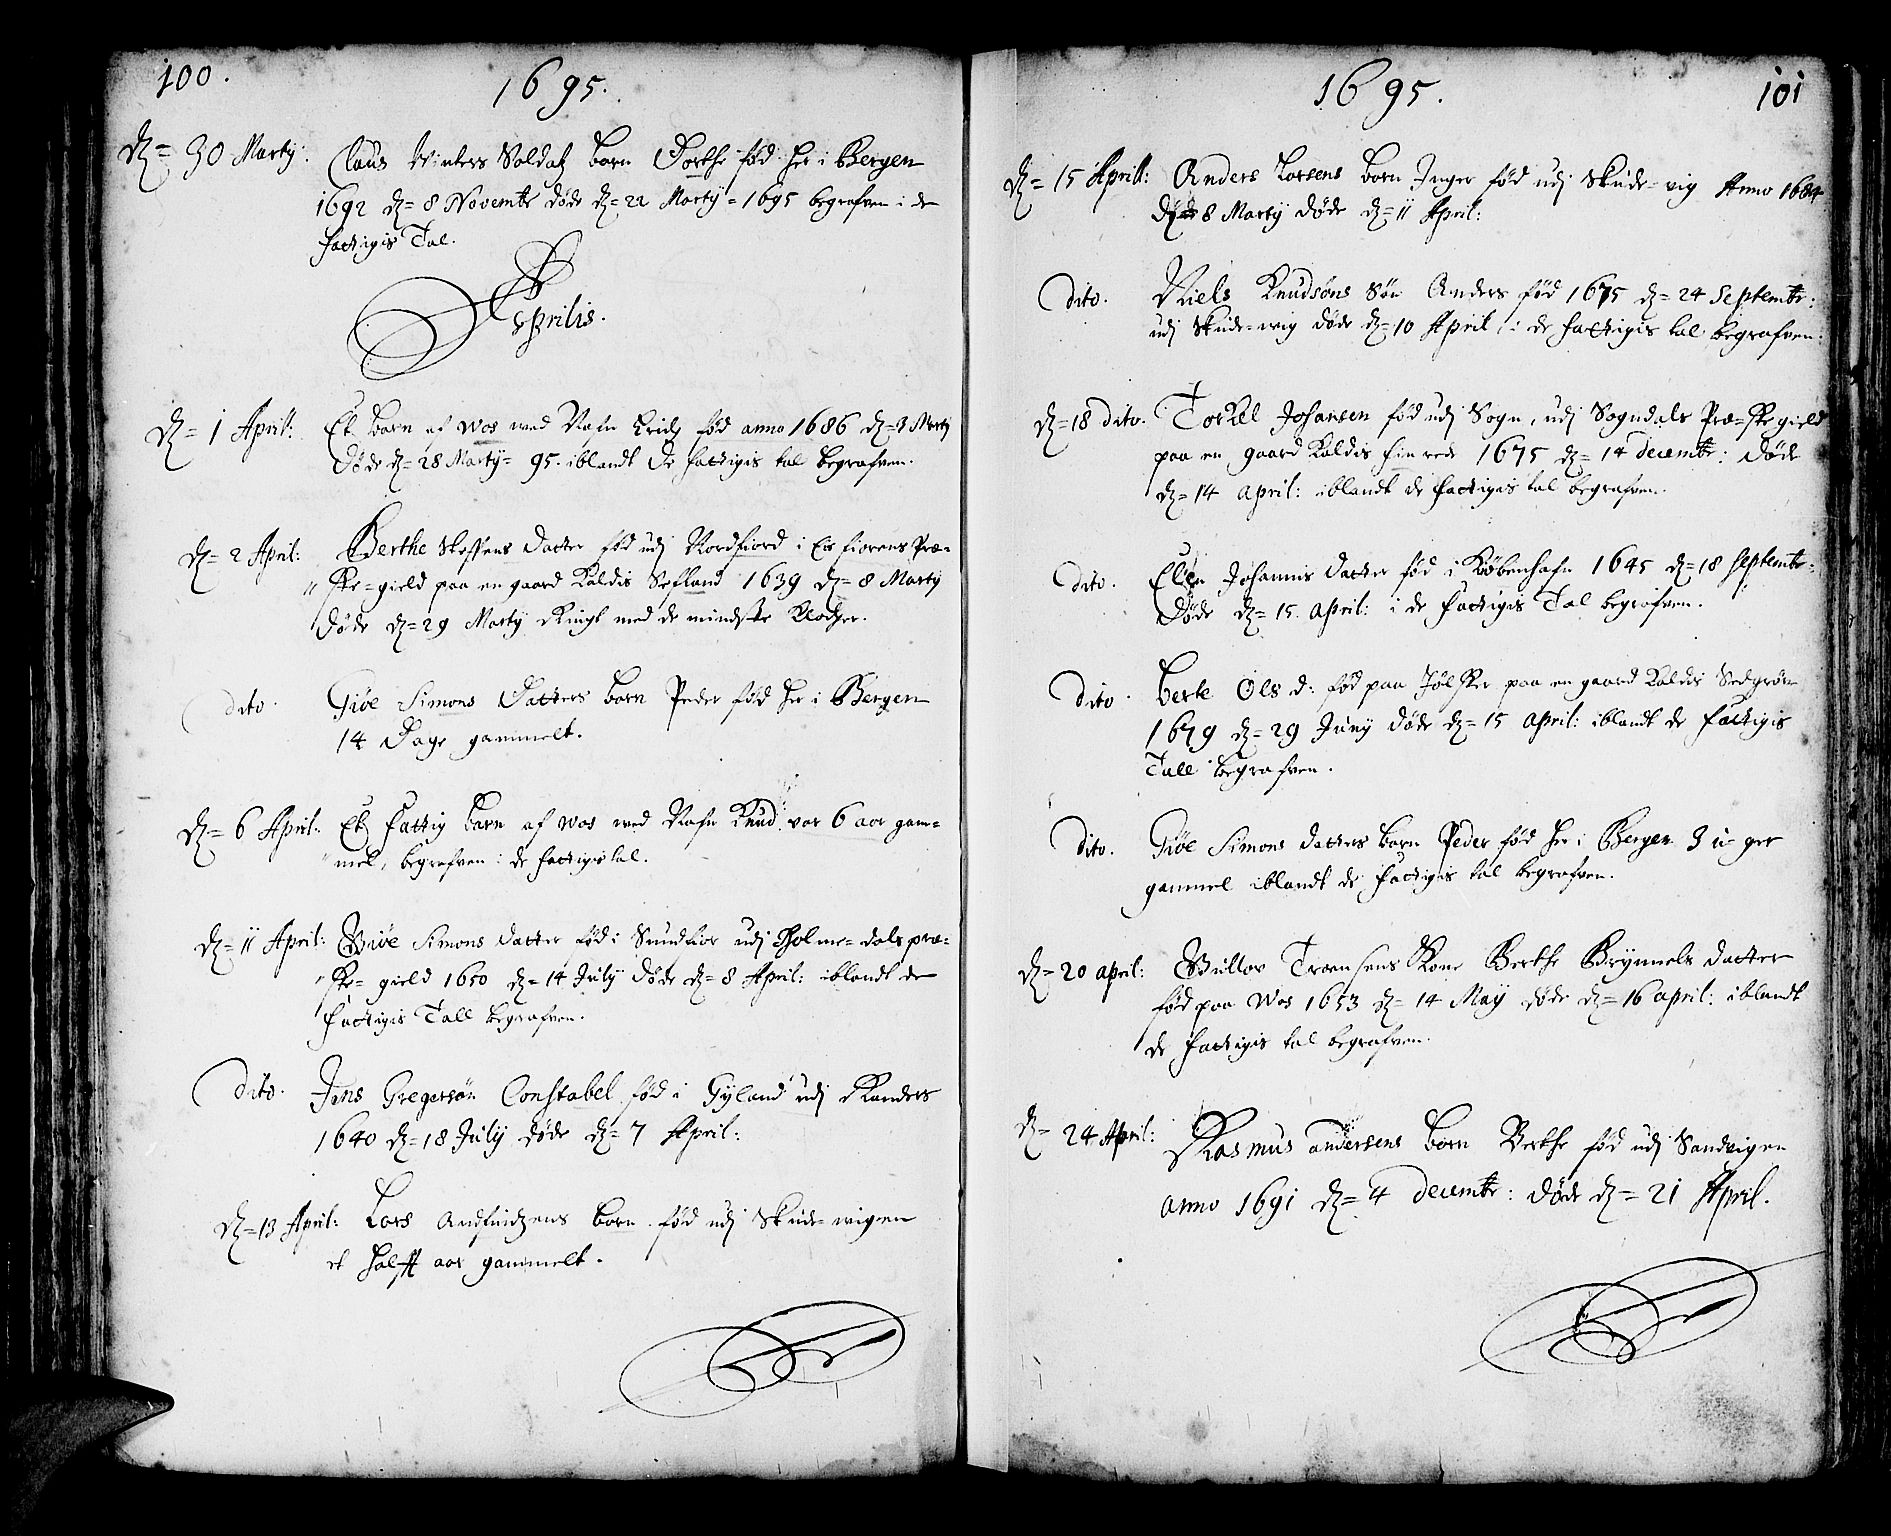 100.
1695.
D= 30 Marty: Claus Winters Soldatz barn Dorthe fød her i Bergen
1692 d= 8 Novembr døde d= 22 Marty = 1695 begrafven i de
fattigis Tal.
Aprilis.
D= 1 April: Et barn af Wos med Nafn fød anno 1686 d= 3 Marty
døde d= 28 Marty= 95. iblandt de fattigis tal begrafven.
D= 2 April: Berthe Steffens datter fød udj Nordfiord i Eis fiorens Præ=
ste=gield paa en gaard kaldis Sefland 1639 d= 8 Marty
døde d= 29 Marty Ringt med de mindste Klocher.
dito. Giøe Simons Datters barn Peder fød her i Bergen
14 Dage gammelt.
D= 6 April: Et fattig barn af Wos med Nafn Knud var 6 aar gam=
mel, begrafven i de fattigis tal.
D= 11 April: Simons datter fød i Sundfior udj Holme=dals præ=
ste=gield 1650 d= 14 July døde d= 8 April: iblandt de
fattigis Tall begrafven.
Dito. Jens Gregersøn Constabel fød i Gyland udj Randers
1640 d= 18 July døde d= 7 April:
D= 13 April: Lars Andfindzens barn fød udj Skude=wigen
et halfft aar gammelt.
1695.
101
D= 15 April: Anders Larsens barn Inger fød udj Skude=vig Anno 1684
D= 8 Marty døde d= 11 April:
Dito. Niels Knudsøns Søn Anders fød 1675 d= 24 Septembr:
udj Skude=wig døde d= 10 April i de fattigis tal begrafven.
D= 18 dito. Torkel Johansen fød udj Sogn, udj Sogndals Præ=ste gield
paa en gaard kaldis 1675 d= 14 decembr: døde
d= 14 april: iblandt de fattigis tal begrafven.
dito. Ellen Johannis datter fød i Københafn 1645 d= 18 Septembr:
døde d= 15. april: i de fattigis Tal begrafven.
dito. Berte Ols d: fød paa Jølster paa en gaard kaldis
1679 d= 29 Juny døde d= 15 april: iblandt de fattigis
Tall begrafven.
Dito. Giøe Simons datters barn Peder fød her i Bergen 3 uger
gammel iblandt de fattigis tal begrafven.
D= 20 april: Gullov Kone Berthe Brynnels datter
fød paa Wos 1653 d= 14 May døde d= 16 april: iblandt
de fattigis tal begrafven.
D= 24 April: Rasmus andersens barn Berthe fød udj Sandvigen
anno 1691 d= 4 decembr: døde d= 21 April.